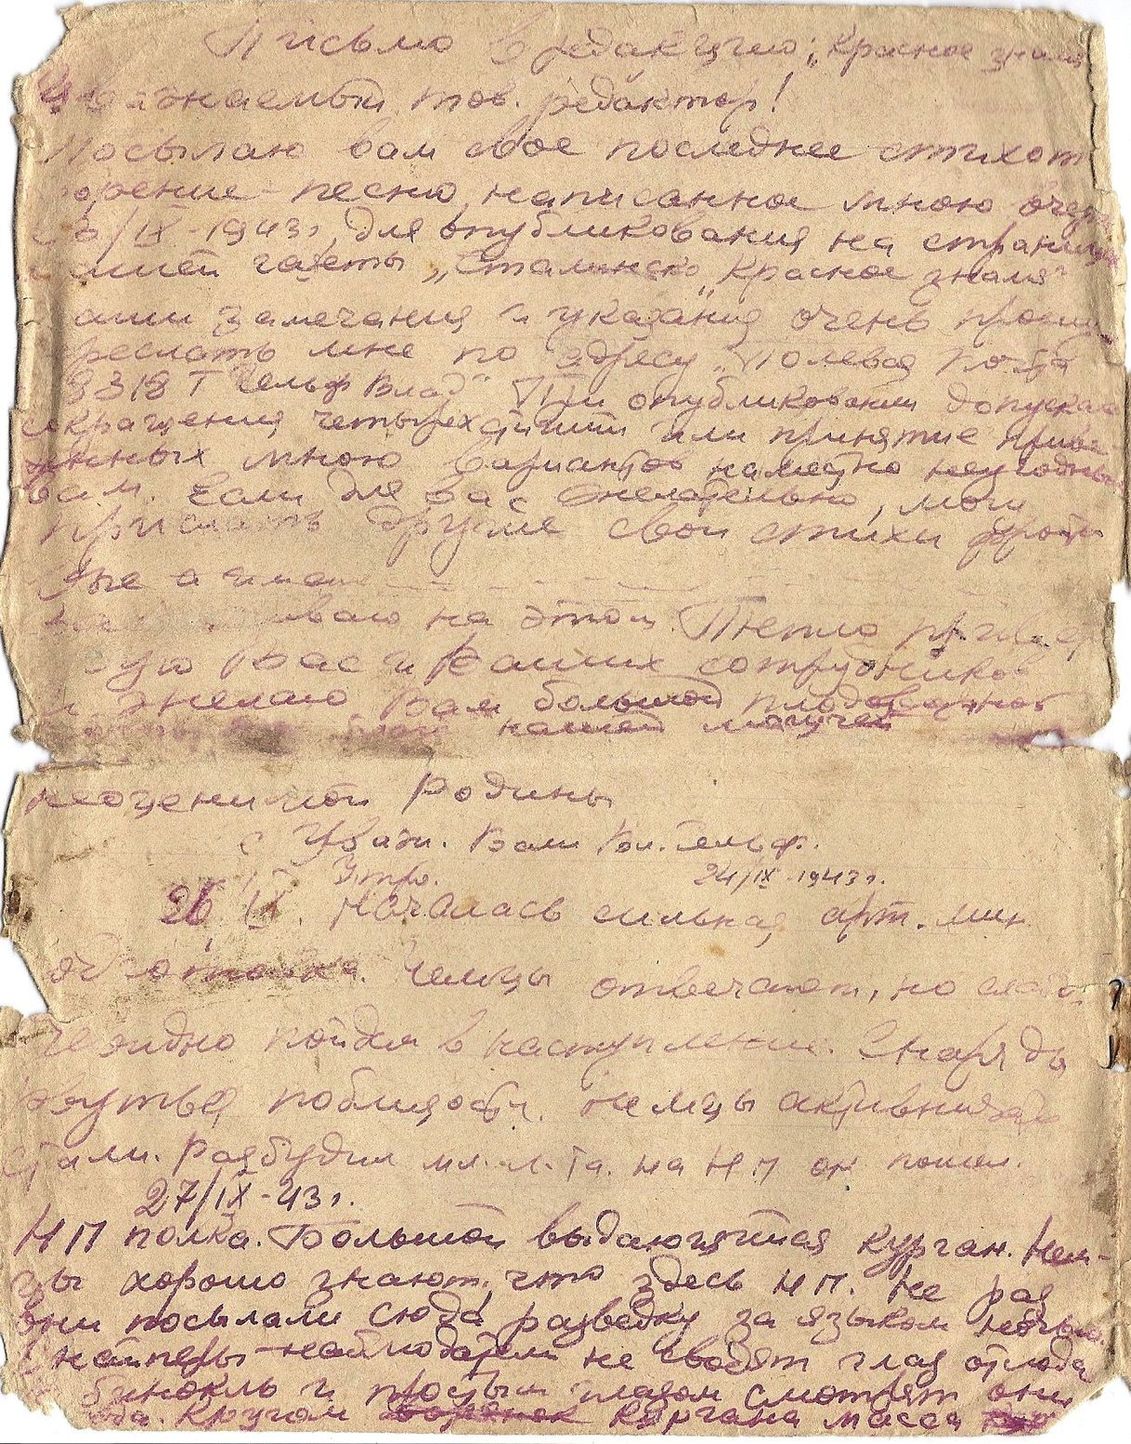 Письмо в редакцию „Красное знамя
Уважаемый тов. редактор!
Посылаю вам свое последнее стихот
ворение-песню, написанное мною
/IX-1943г, для опубликования на страницах
газеты „Сталинско „Красное знамя"
замечания и указания очень прошу
переслать мне по адресу „Полевая почта
Гельф Влад" При опубликовании допускаю
сокращения четырехстиший или принятие приве
денных мною вариантов неугодных
вам. Если для вас желательно, могу
прислать другие свои стихи
на этом. Тепло
Вас и Ваших сотрудников
и желаю Вам большой
нашей могучей
неоценимой Родины
с Уваж. Вам Вл. Гельф.
24/IX-1943г.
Утро.
26/IX. Началась сильная арт. мин
подготовка. Немцы отвечают, но слабо
Очевидно пойдем в наступление. Снаряды
рвутся поблизости. Немцы
стали. Разбудил мл. л-та. на НП он пошел.
27/IX-43г.
НП полка. Большой выдающийся курган. Нем-
цы хорошо знают, что здесь НП. Не раз
они посылали сюда разведку за языком ночью.
Снайперы-наблюдатели не сводят глаз отсюда
бинокль и простым глазом смотрят они
Кругом кургана масса